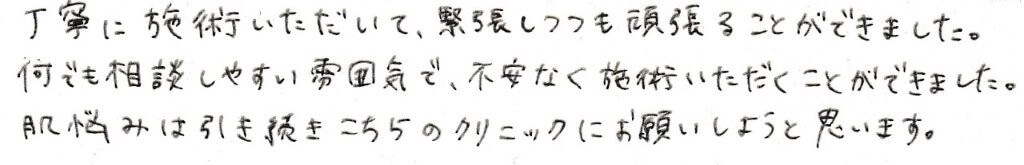 丁寧に施術いただいて、緊張しつつも頑張ることができました。
何でも相談しやすい雰囲気で、不安なく施術いただくことができました。
肌悩みは引き続きこちらのクリニックにお願いしようと思います。